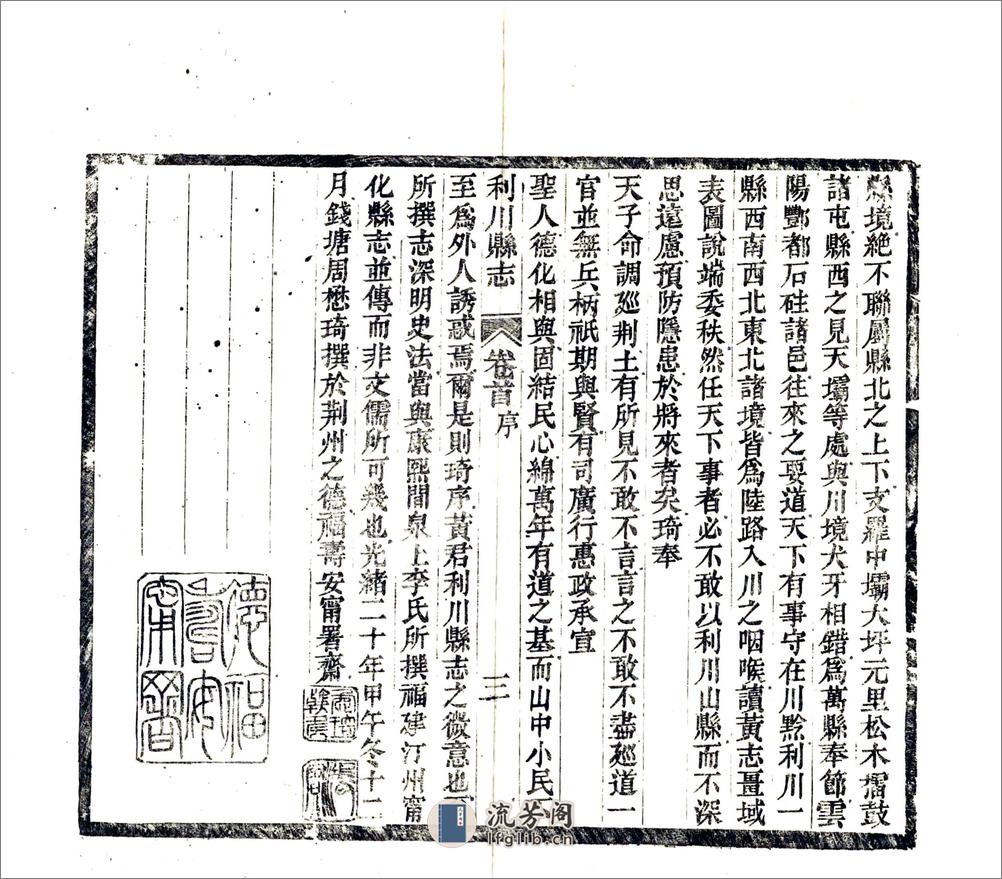 縣境絶不聯屬縣北之上下支羅中壩大坪元里松木擂鼓
諸屯縣西之見天壩等處與川境犬牙相錯爲萬縣奉節雲
陽酆都石砫諸邑往來之要道天下有事守在川黔利川一
縣西南西北東北諸境皆爲陸路入川之咽喉讀黃志畺域
表圖說端委秩然任天下事者必不敢以利川山縣而不深
思遠慮預防隱患於將來者矣琦奉
天子命調廵荆土有所見不敢不言言之不敢不盡廵道一
官並無兵柄祇期與賢有司廣行惠政承宣
聖人德化相與固結民心綿萬年有道之基而山中小民不
利川縣志
卷首
序
三
至爲外人誘惑焉爾是則琦序黃君利川縣志之微意也
所撰志深明史法當與康熙間泉上李氏所撰福建汀州甯
化縣志並傳而非文儒所可幾也光緒二十年甲午冬十二
月錢塘周懋琦撰於荆州之德福壽安甯署齋
德福
壽安
甯齋
流芳阁
lfglib.cn